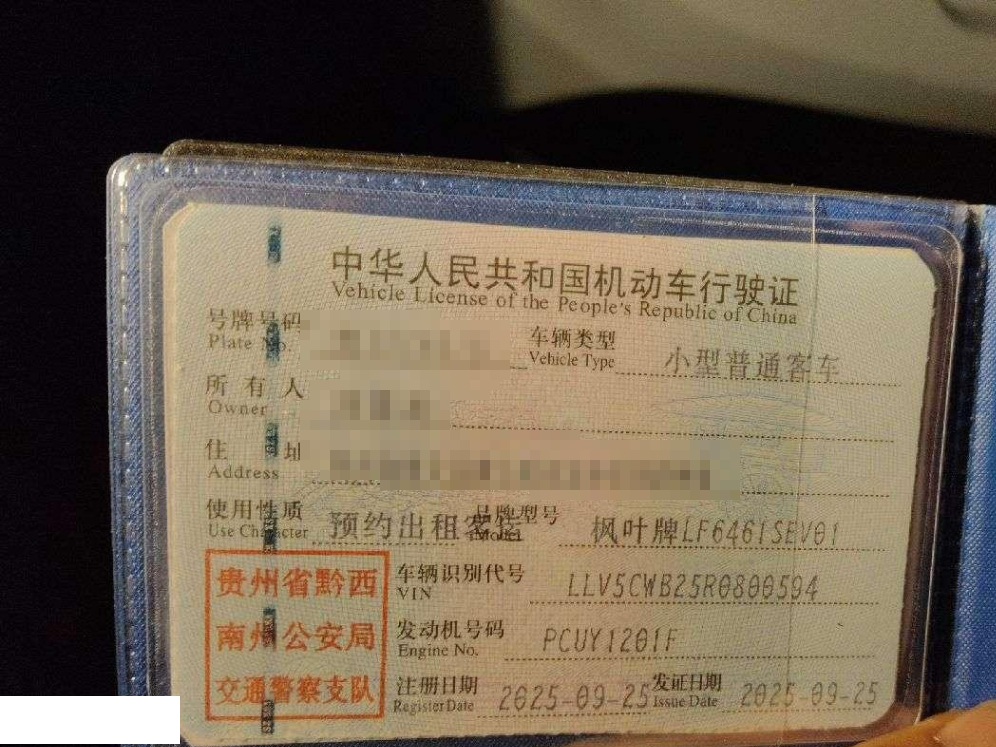 中华人民共和国机动车行驶证
Vehicle License of the People's Republic of China
号牌号码
Plate No.
车辆类型 小型普通客车
Vehicle Type
所有人
Owner
住址
Address
使用性质 预约出租客运
Use Character
品牌型号 枫叶牌LF6461SEV01
Model
贵州省黔西
南州公安局
交通警察支队
车辆识别代号 LLV5CWB25R0800594
VIN
发动机号码 PCUY1201F
Engine No.
注册日期 2025-09-25
Register Date
发证日期 2025-09-25
Issue Date